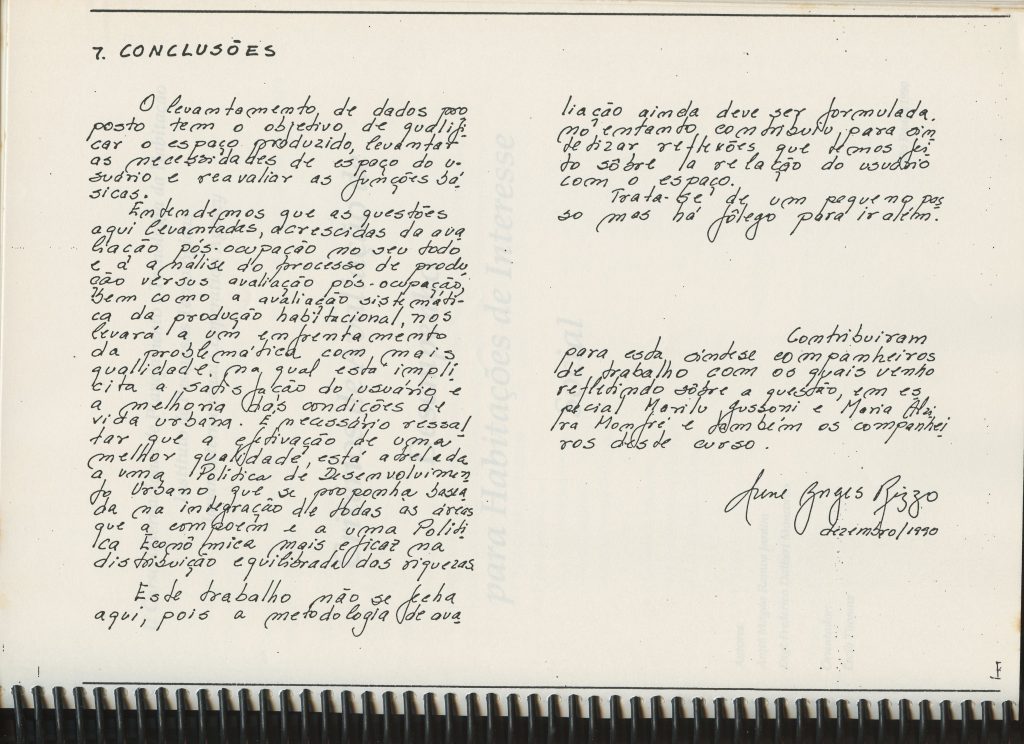 7. CONCLUSÕES
O levantamento, de dados pro
posto tem o objetivo de qualifi
car o espaço produzido, levantar
as necessidades de espaço do u-
suário e reavaliar as funções bá-
sicas.
Entendemos que as questões
aqui levantadas, acrescidas da ava
liação pós-ocupação no seu todo
e à análise do processo de produ
ção versus avaliação pós-ocupação,
bem como a avaliação sistemáti-
ca da produção habitacional, nos
levará a um enfrentamento
da problemática com mais
qualidade, na qual está implí
cita a satisfação do usuário e
a melhoria das condições de
vida urbana. É necessário ressal
tar que a efetivação de uma
melhor qualidade, está atrelada
a uma Política de Desenvolvimen
to Urbano, que se proponha basea
da na integração de todas as áreas
que a compõem e a uma Políti
ca Econômica mais eficaz na
distribuição equilibrada das riquezas.
Este trabalho não se fecha
aqui, pois a metodologia de ava
liação ainda deve ser formulada.
no entanto, contribuiu, para sin
tetizar reflexões que temos fei
to sôbre a relação do usuário
com o espaço.
Trata-se de um pequeno pas
so mas há fôlego para ir além.
Contribuiram
para esta síntese companheiros
de trabalho com os quais venho
refletindo sôbre a questão, em es
pecial Marilu Gussoni e Maria Alzi
ra Monfré e também os companhei
ros deste curso.
Rizzo
dezembro/1990
para Habitações de Interesse